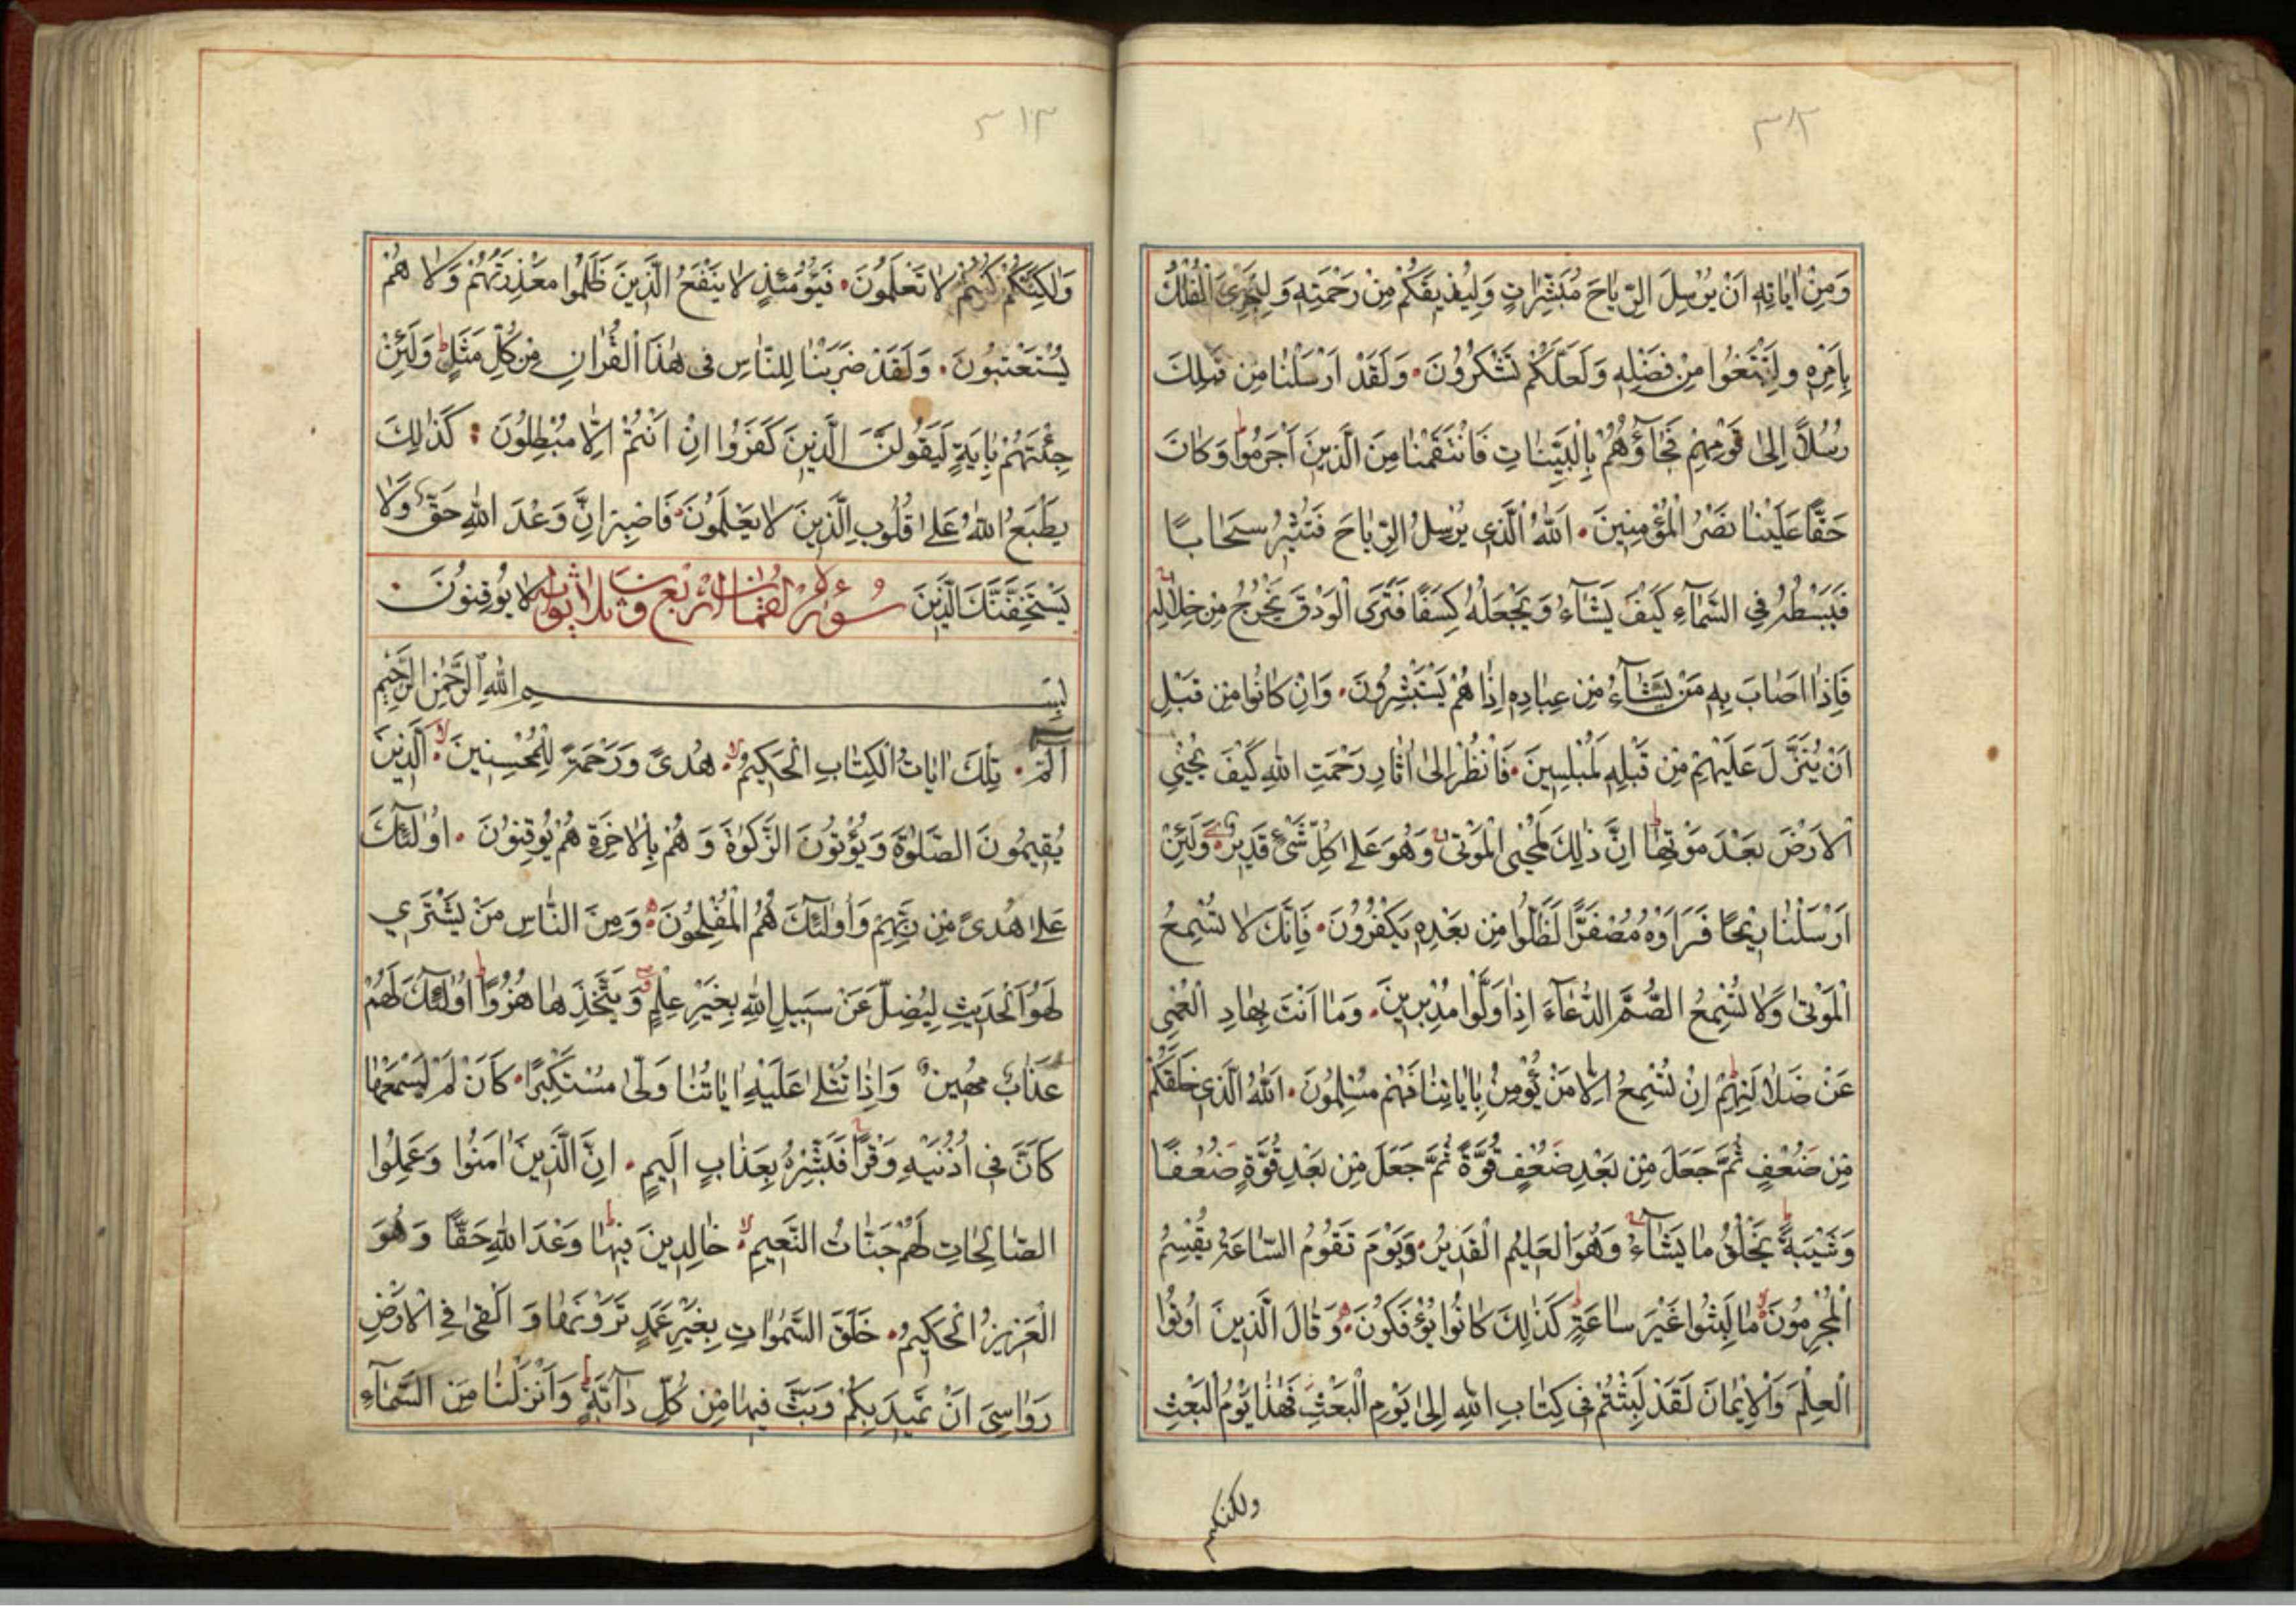 وَمِنْ اٰيَاتِهِ اَنْ يُرْسِلَ الرِّيَاحَ مُبَشِّرَاتٍ وَلِيُذِيقَكُمْ مِنْ رَحْمَتِهِ وَلِتَجْرِيَ الْفُلْكُ
بِاَمْرِهِ وَلِتَبْتَغُوا مِنْ فَضْلِهِ وَلَعَلَّكُمْ تَشْكُرُونَ وَلَقَدْ اَرْسَلْنَا مِنْ قَبْلِكَ
رُسُلًا اِلٰى قَوْمِهِمْ فَجَاؤُهُمْ بِالْبَيِّنَاتِ فَانْتَقَمْنَا مِنَ الَّذِينَ اَجْرَمُوا وَكَانَ
حَقًّا عَلَيْنَا نَصْرُ الْمُؤْمِنِينَ اَللّٰهُ الَّذِي يُرْسِلُ الرِّيَاحَ فَتُثِيرُ سَحَابًا
فَيَبْسُطُهُ فِي السَّمَآءِ كَيْفَ يَشَآءُ وَيَجْعَلُهُ كِسَفًا فَتَرَى الْوَدْقَ يَخْرُجُ مِنْ خِلَالِهِ
فَاِذَا اَصَابَ بِهِ مَنْ يَشَآءُ مِنْ عِبَادِهِ اِذَا هُمْ يَسْتَبْشِرُونَ وَاِنْ كَانُوا مِنْ قَبْلِ
اَنْ يُنَزَّلَ عَلَيْهِمْ مِنْ قَبْلِهِ لَمُبْلِسِينَ فَانْظُرْ اِلٰى اٰثَارِ رَحْمَتِ اللّٰهِ كَيْفَ يُحْيِي
الْاَرْضَ بَعْدَ مَوْتِهَا اِنَّ ذٰلِكَ لَمُحْيِي الْمَوْتٰى وَهُوَ عَلٰى كُلِّ شَيْءٍ قَدِيرٌ وَلَئِنْ
اَرْسَلْنَا رِيحًا فَرَاَوْهُ مُصْفَرًّا لَظَلُّوا مِنْ بَعْدِهِ يَكْفُرُونَ فَاِنَّكَ لَا تُسْمِعُ
الْمَوْتٰى وَلَا تُسْمِعُ الصُّمَّ الدُّعَآءَ اِذَا وَلَّوْا مُدْبِرِينَ وَمَا اَنْتَ بِهَادِ الْعُمْيِ
عَنْ ضَلَالَتِهِمْ اِنْ تُسْمِعُ اِلَّا مَنْ يُؤْمِنُ بِاٰيَاتِنَا فَهُمْ مُسْلِمُونَ اَللّٰهُ الَّذِي خَلَقَكُمْ
مِنْ ضَعْفٍ ثُمَّ جَعَلَ مِنْ بَعْدِ ضَعْفٍ قُوَّةً ثُمَّ جَعَلَ مِنْ بَعْدِ قُوَّةٍ ضَعْفًا
وَشَيْبَةً يَخْلُقُ مَا يَشَآءُ وَهُوَ الْعَلِيمُ الْقَدِيرُ وَيَوْمَ تَقُومُ السَّاعَةُ يُقْسِمُ
الْمُجْرِمُونَ مَا لَبِثُوا غَيْرَ سَاعَةٍ كَذٰلِكَ كَانُوا يُؤْفَكُونَ وَقَالَ الَّذِينَ اُوتُوا
الْعِلْمَ وَالْاِيمَانَ لَقَدْ لَبِثْتُمْ فِي كِتَابِ اللّٰهِ اِلٰى يَوْمِ الْبَعْثِ فَهٰذَا يَوْمُ الْبَعْثِ
ولكنكم
وَلٰكِنَّكُمْ كُنْتُمْ لَا تَعْلَمُونَ فَيَوْمَئِذٍ لَا يَنْفَعُ الَّذِينَ ظَلَمُوا مَعْذِرَتُهُمْ وَلَا هُمْ
يُسْتَعْتَبُونَ وَلَقَدْ ضَرَبْنَا لِلنَّاسِ فِي هٰذَا الْقُرْاٰنِ مِنْ كُلِّ مَثَلٍ وَلَئِنْ
جِئْتَهُمْ بِاٰيَةٍ لَيَقُولَنَّ الَّذِينَ كَفَرُوا اِنْ اَنْتُمْ اِلَّا مُبْطِلُونَ كَذٰلِكَ
يَطْبَعُ اللّٰهُ عَلٰى قُلُوبِ الَّذِينَ لَا يَعْلَمُونَ فَاصْبِرْ اِنَّ وَعْدَ اللّٰهِ حَقٌّ وَلَا
يَسْتَخِفَّنَّكَ الَّذِينَ لَا يُوقِنُونَ
سُورَةُ لقمان اربع وثلاثون اية
بِسْمِ اللّٰهِ الرَّحْمٰنِ الرَّحِيمِ
الٓمٓ تِلْكَ اٰيَاتُ الْكِتَابِ الْحَكِيمِ هُدًى وَرَحْمَةً لِلْمُحْسِنِينَ اَلَّذِينَ
يُقِيمُونَ الصَّلٰوةَ وَيُؤْتُونَ الزَّكٰوةَ وَهُمْ بِالْاٰخِرَةِ هُمْ يُوقِنُونَ اُولٰٓئِكَ
عَلٰى هُدًى مِنْ رَبِّهِمْ وَاُولٰٓئِكَ هُمُ الْمُفْلِحُونَ وَمِنَ النَّاسِ مَنْ يَشْتَرِي
لَهْوَ الْحَدِيثِ لِيُضِلَّ عَنْ سَبِيلِ اللّٰهِ بِغَيْرِ عِلْمٍ وَيَتَّخِذَهَا هُزُوًا اُولٰٓئِكَ لَهُمْ
عَذَابٌ مُهِينٌ وَاِذَا تُتْلٰى عَلَيْهِ اٰيَاتُنَا وَلّٰى مُسْتَكْبِرًا كَاَنْ لَمْ يَسْمَعْهَا
كَاَنَّ فِي اُذُنَيْهِ وَقْرًا فَبَشِّرْهُ بِعَذَابٍ اَلِيمٍ اِنَّ الَّذِينَ اٰمَنُوا وَعَمِلُوا
الصَّالِحَاتِ لَهُمْ جَنَّاتُ النَّعِيمِ خَالِدِينَ فِيهَا وَعْدَ اللّٰهِ حَقًّا وَهُوَ
الْعَزِيزُ الْحَكِيمُ خَلَقَ السَّمٰوَاتِ بِغَيْرِ عَمَدٍ تَرَوْنَهَا وَاَلْقٰى فِي الْاَرْضِ
رَوَاسِيَ اَنْ تَمِيدَ بِكُمْ وَبَثَّ فِيهَا مِنْ كُلِّ دَآبَّةٍ وَاَنْزَلْنَا مِنَ السَّمَآءِ